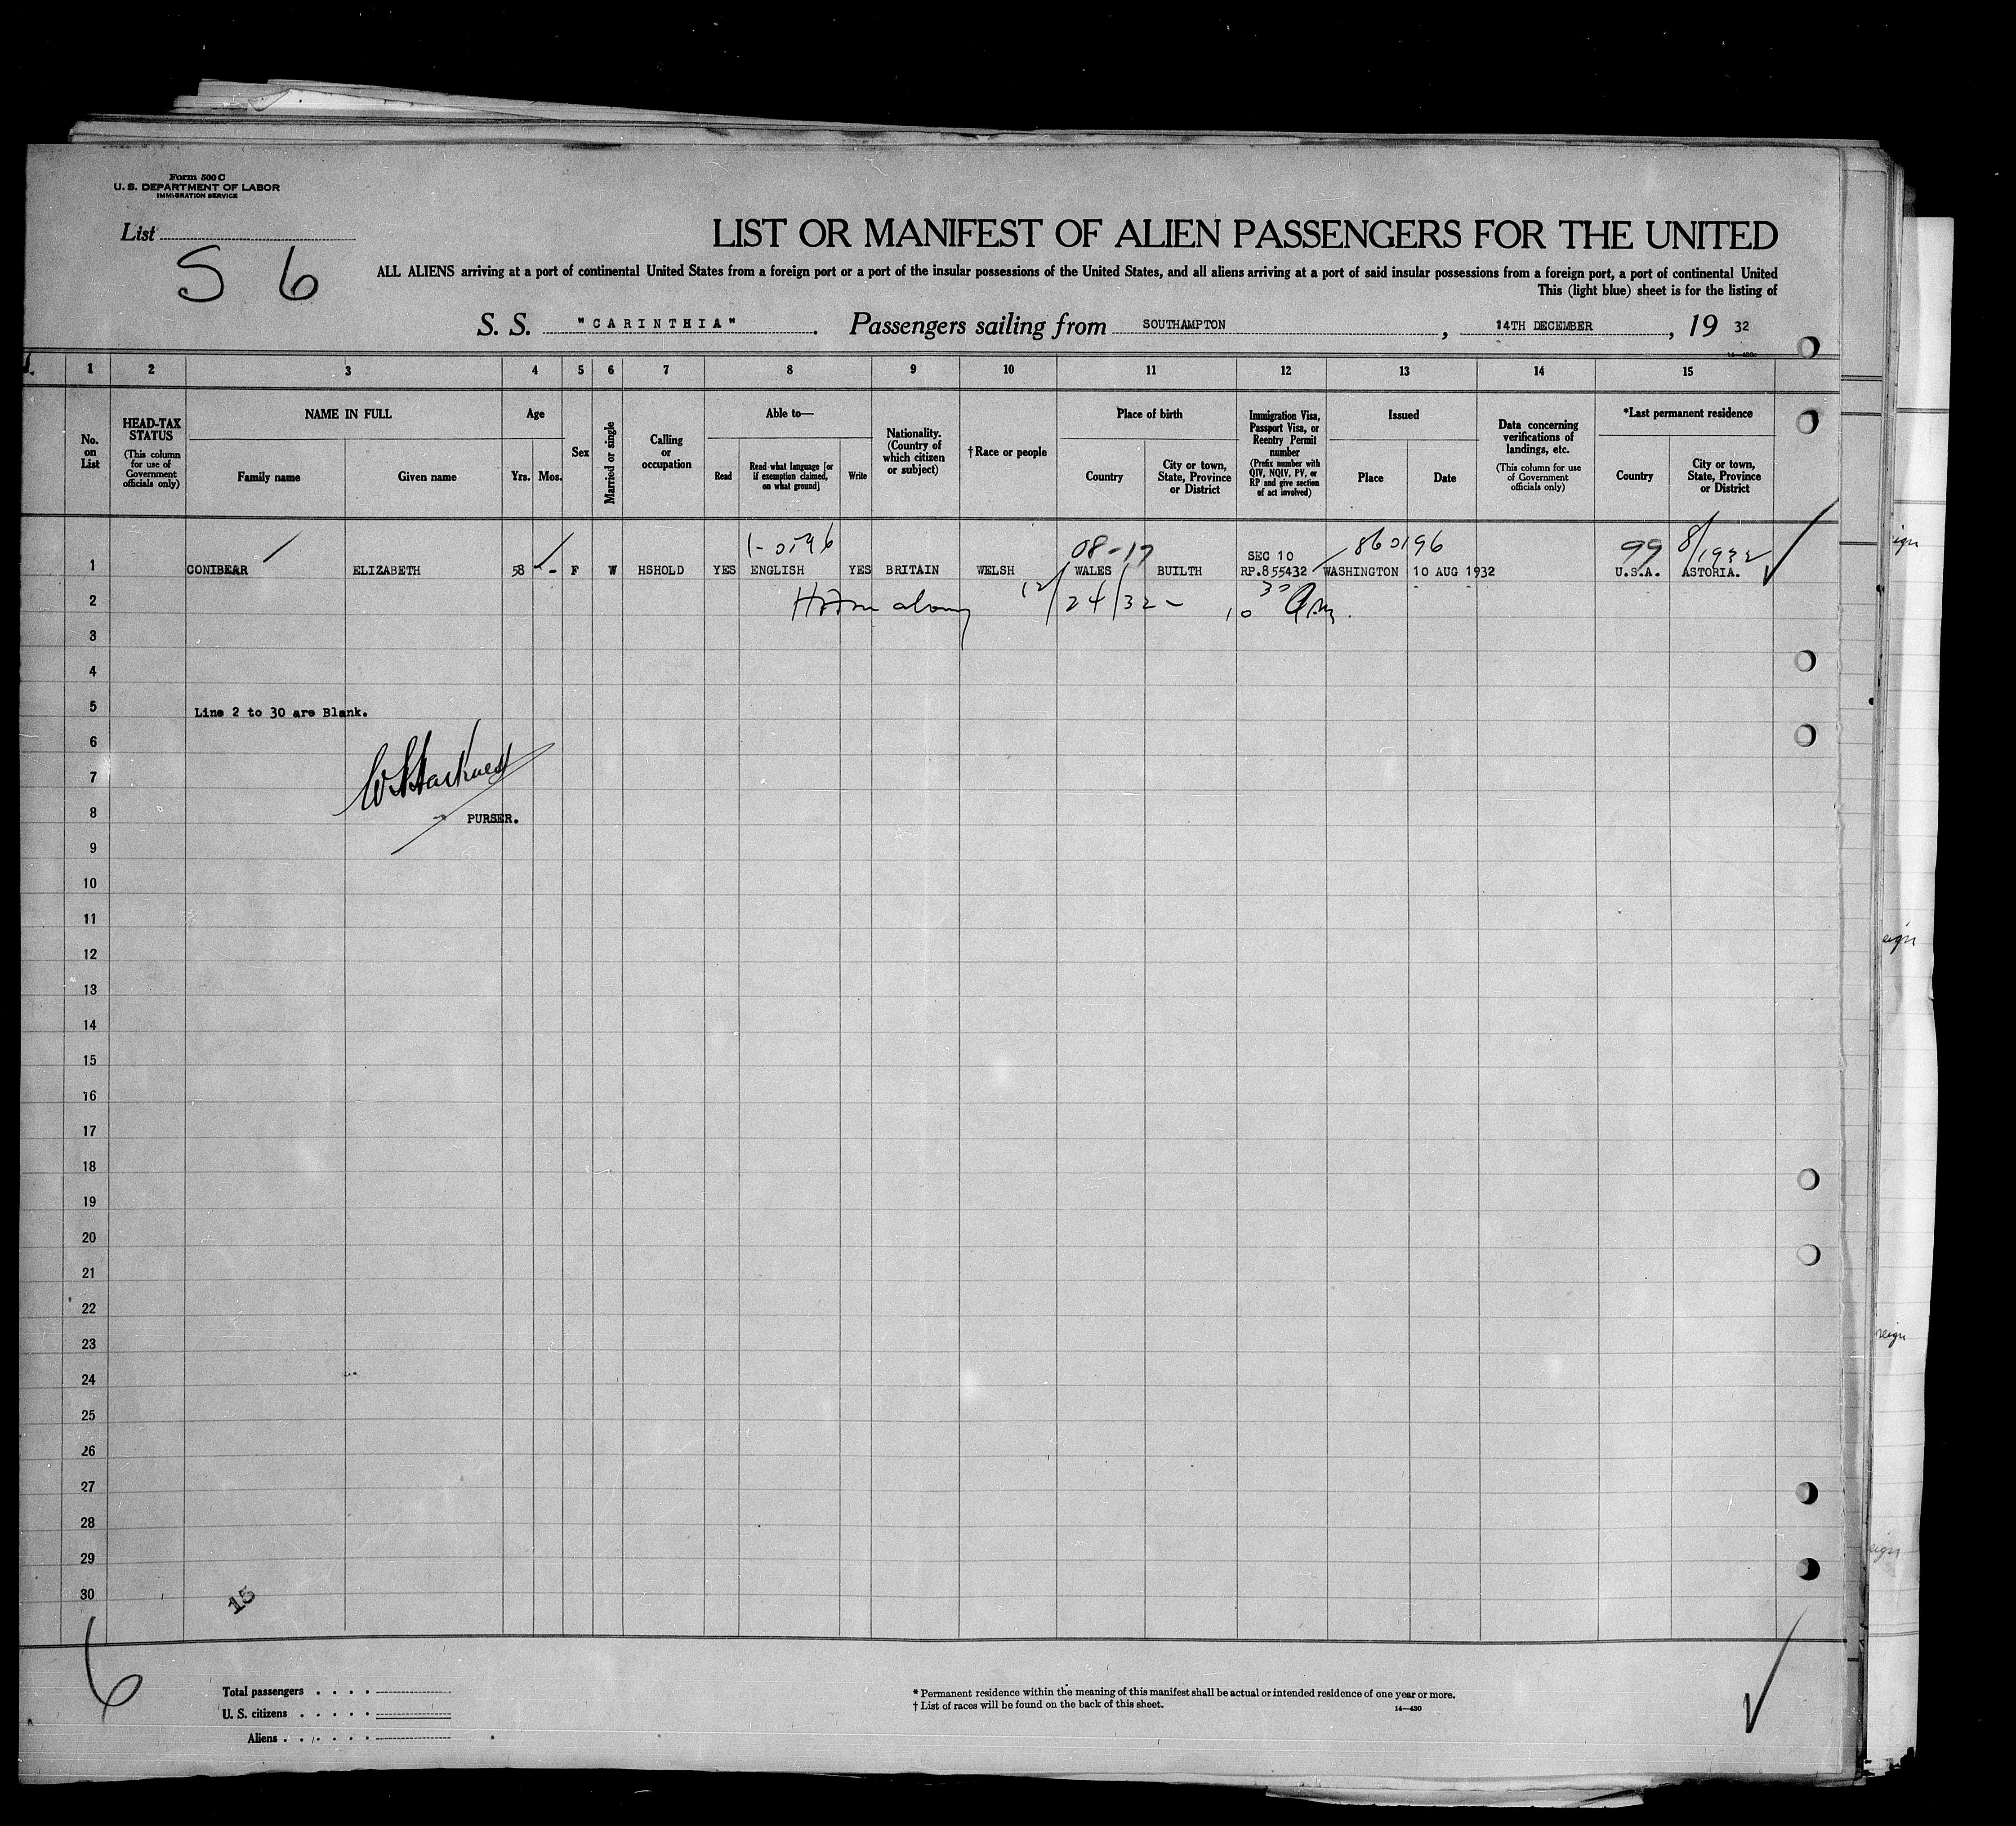 Form 500 C
U. S. DEPARTMENT OF LABOR
IMMIGRATION SERVICE
List
S 6
LIST OR MANIFEST OF ALIEN PASSENGERS FOR THE UNITED
ALL ALIENS arriving at a port of continental United States from a foreign port or a port of the insular possessions of the United States, and all aliens arriving at a port of said insular possessions from a foreign port, a port of continental United
This (light blue) sheet is for the listing of
S. S. "CARINTHIA". Passengers sailing from SOUTHAMPTON, 14TH DECEMBER, 19 32
14—430
1 2 3 4 5 6 7 8 9 10 11 12 13 14 15
No. on List
HEAD-TAX STATUS
(This column for use of Government officials only)
NAME IN FULL
Family name
Given name
Age
Yrs. Mos.
Sex
Married or single
Calling or occupation
Able to—
Read
Read what language [or if exemption claimed, on what ground]
Write
Nationality. (Country of which citizen or subject)
† Race or people
Place of birth
Country
City or town, State, Province or District
Immigration Visa, Passport Visa, or Reentry Permit number
(Prefix number with QIV, NQIV, PV, or RP and give section of act involved)
Issued
Place
Date
Data concerning verifications of landings, etc.
(This column for use of Government officials only)
*Last permanent residence
Country
City or town, State, Province or District
1-0596 08-17 860196 99 8/1932
SEC 10
1 CONIBEAR ELIZABETH 58 - F W HSHOLD YES ENGLISH YES BRITAIN WELSH WALES BUILTH RP.855432 WASHINGTON 10 AUG 1932 U.S.A. ASTORIA.
2 12/24/32 - 10 30
3
4
5 Line 2 to 30 are Blank.
6
7
8 PURSER.
9
10
11
12
13
14
15
16
17
18
19
20
21
22
23
24
25
26
27
28
29
30
15
6
Total passengers . . . .
U. S. citizens . . . . .
Aliens . . . . . .
* Permanent residence within the meaning of this manifest shall be actual or intended residence of one year or more.
† List of races will be found on the back of this sheet.
14—430
eign
eign
reign
eign